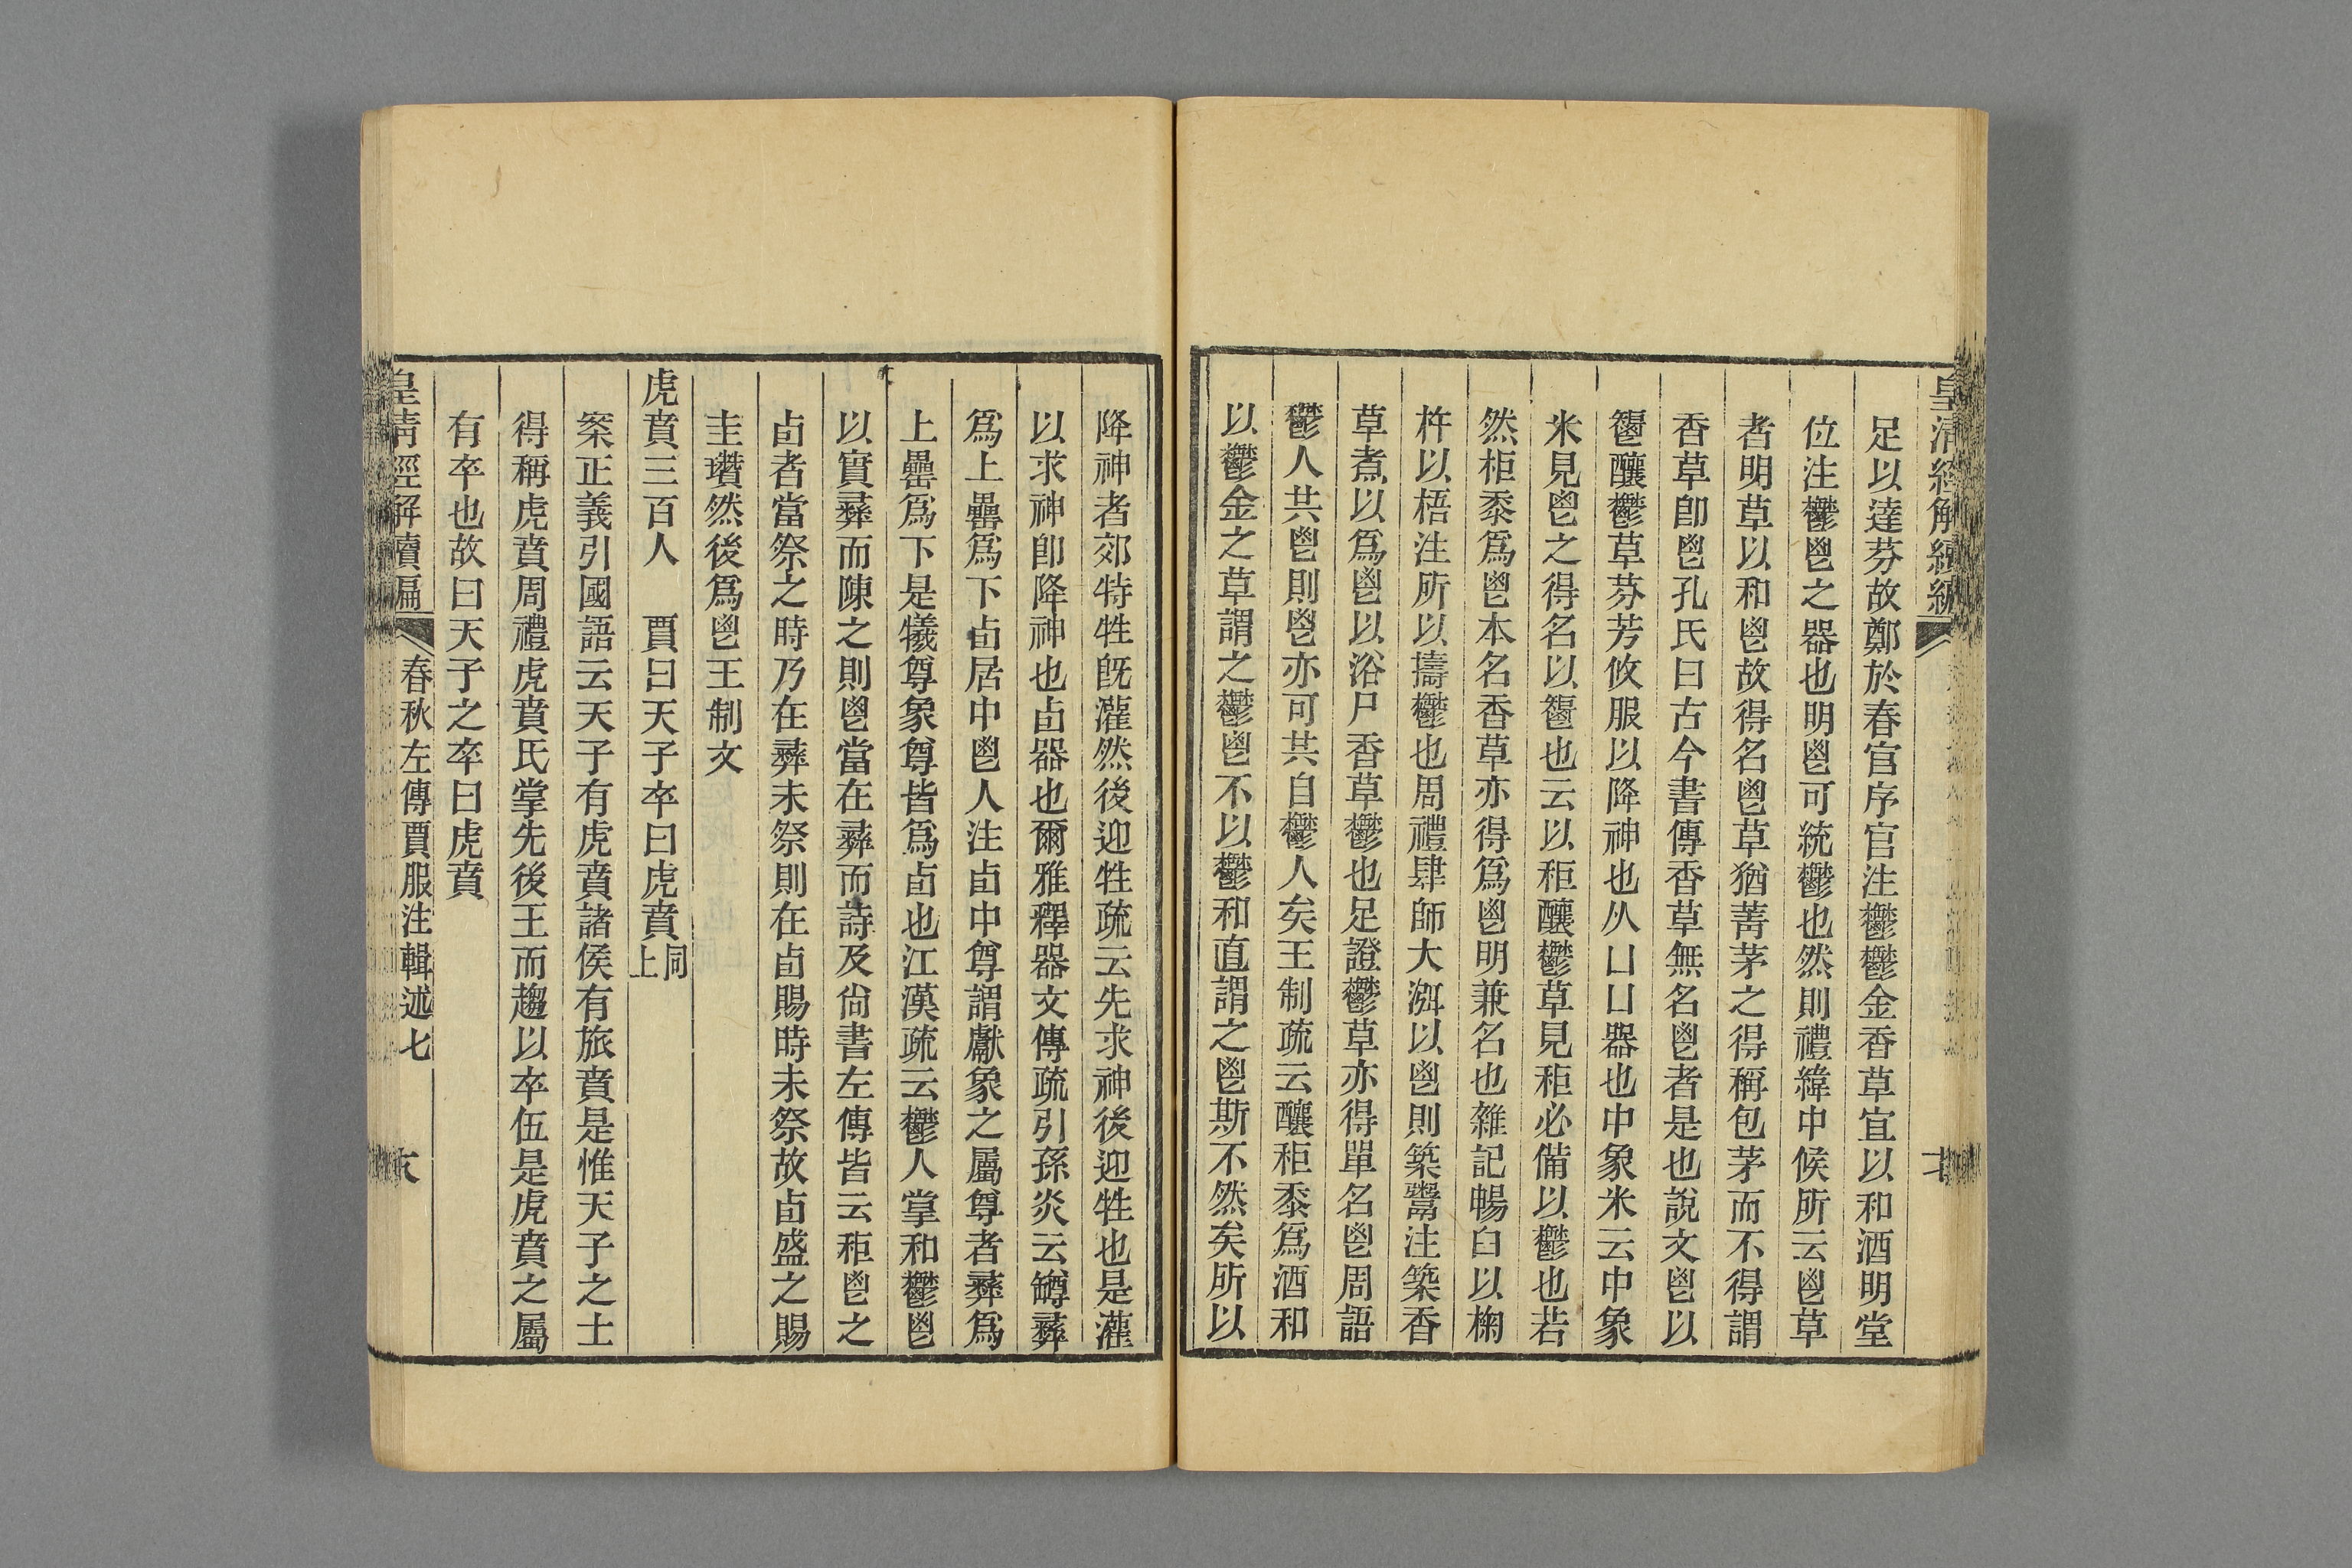 皇清經解續編
足以達芬故鄭於春官序官注鬱鬱金香草宜以和酒明堂
位注鬱鬯之器也明鬯可統鬱也然則禮緯中候所云鬯草
者明草以和鬯故得名鬯草猶菁茅之得稱包茅而不得謂
香草卽鬯孔氏曰古今書傳香草無名鬯者是也說文鬯以
䅣釀鬱草芬芳攸服以降神也从凵凵器也中象米云中象
米見鬯之得名以䅣也云以秬釀鬱草見秬必備以鬱也若
然柜黍爲鬯本名香草亦得爲鬯明兼名也雜記暢臼以椈
杵以梧注所以擣鬱也周禮肆師大渳以鬯則築鬻注築香
草煮以爲鬯以浴尸香草鬱也足證鬱草亦得單名鬯周語
鬱人共鬯則鬯亦可共自鬱人矣王制疏云釀秬黍爲酒和
以鬱金之草謂之鬱鬯不以鬱和直謂之鬯斯不然矣所以
降神者郊特牲旣灌然後迎牲疏云先求神後迎牲也是灌
以求神卽降神也卣器也爾雅釋器文傳疏引孫炎云罇彝
爲上罍爲下卣居中鬯人注卣中尊謂獻象之屬尊者彝爲
上罍爲下是犧尊象尊皆爲卣也江漢疏云鬱人掌和鬱鬯
以實彝而陳之則鬯當在彝而詩及尙書左傳皆云秬鬯之
卣者當祭之時乃在彝未祭則在卣賜時未祭故卣盛之賜
圭瓚然後爲鬯王制文
虎賁三百人　賈曰天子卒曰虎賁同上
案正義引國語云天子有虎賁諸侯有旅賁是惟天子之士
得稱虎賁周禮虎賁氏掌先後王而趨以卒伍是虎賁之屬
有卒也故曰天子之卒曰虎賁
皇清經解續編　春秋左傳賈服注輯述七